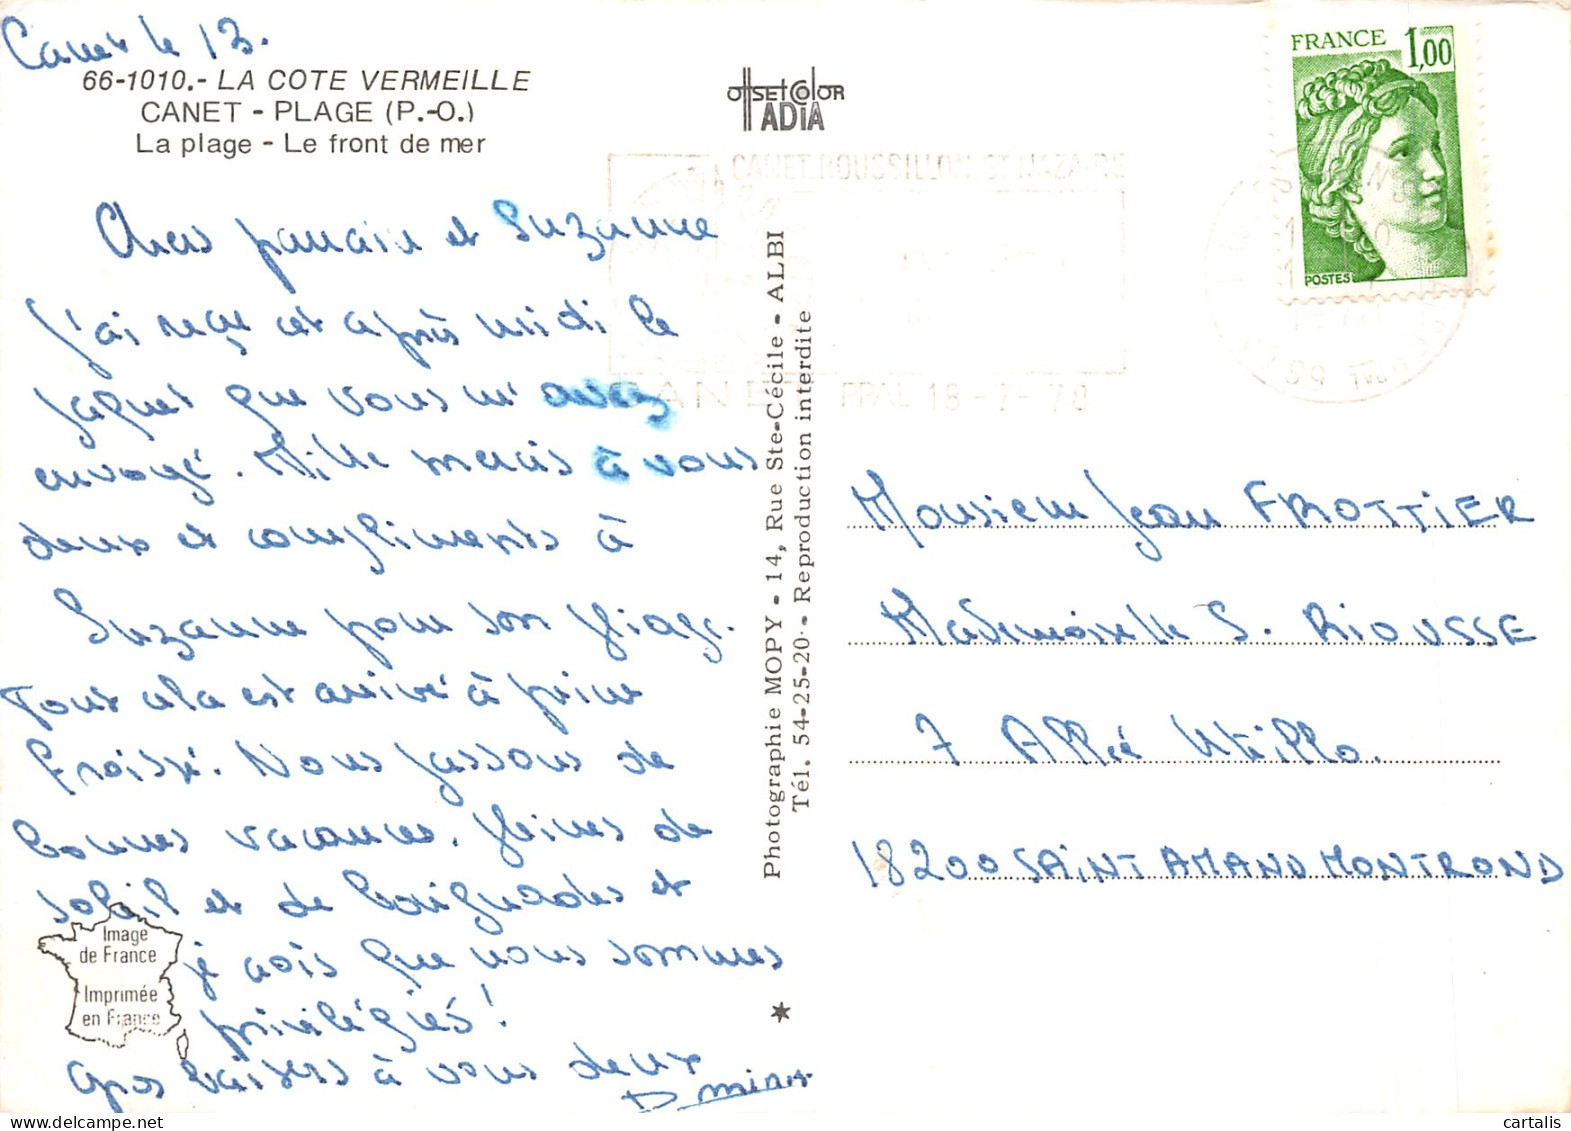 Canet le 13.
66-1010.- LA COTE VERMEILLE
CANET - PLAGE (P.-O.)
La plage - Le front de mer
Chers parrain et Suzanne
j'ai reçu cet après midi le
paquet que vous m'avez
envoyé. Mille mercis à vous
deux et compliments à
Suzanne pour son
Tout cela est arrivé à peine
froissé. Nous passons de
bonnes vacances, pleines de
soleil et de baignades et
je crois que nous sommes
privilégiés!
Gros baisers à vous deux
Image
de France
Imprimée
en France
OffSET COlOR
ADIA
Photographie MOPY - 14, Rue Ste-Cécile - ALBI
Tél. 54-25-20 - Reproduction interdite
CANET ROUSSILLON ST NAZAIRE
CANET PPAL 18-7-78
FRANCE 1,00
POSTES
Monsieur Jean FROTTIER
Mademoiselle S. RIOUSSE
7 Allée Utrillo.
18200 SAINT AMAND MONTROND
cartalis